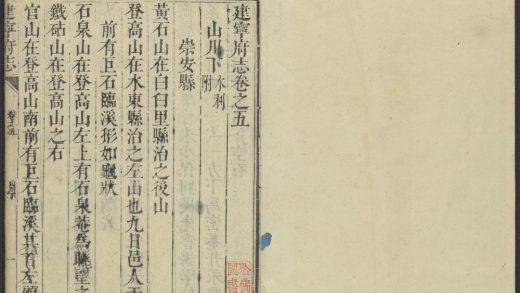 建寧府志卷之五
山川下 水利附
崇安縣
黃石山在白白里縣治之後山
登高山在水東縣治之左山也九日邑人王
前有巨石臨溪形如龜狀
石泉山在登高山左上有石泉菴為眺望之
鐵砧山在登高山之右
官山在登高山南前有巨石臨溪其首左顧
建寧府志
卷之五
一